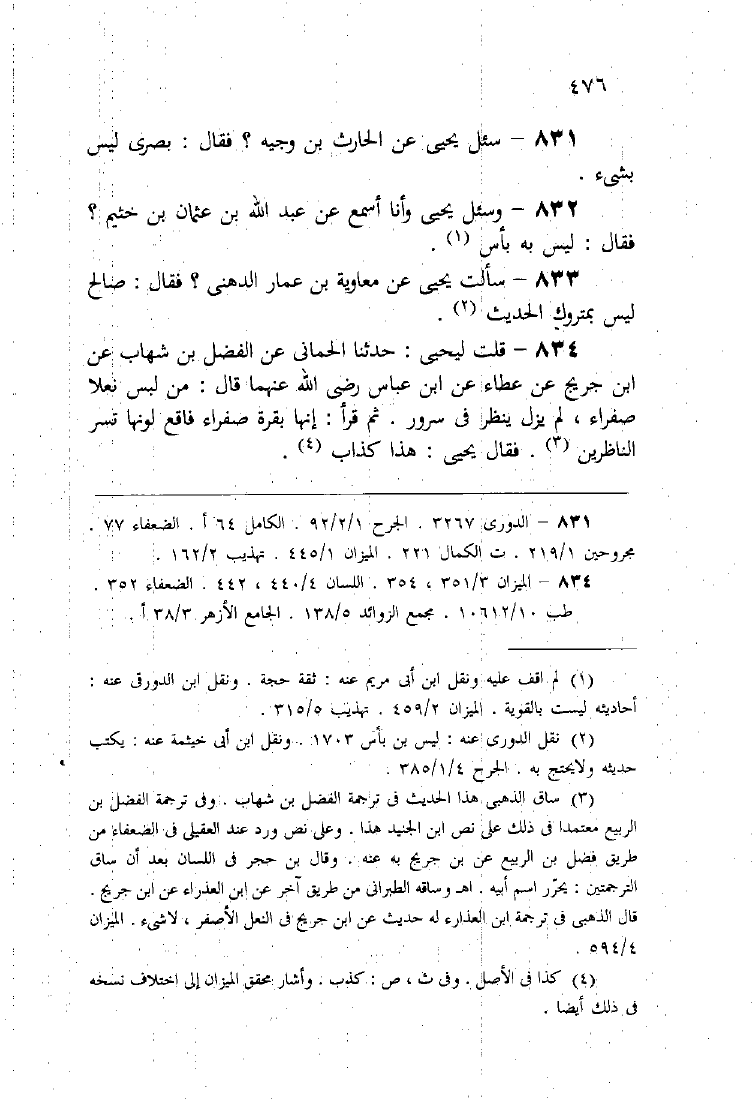 ٤٧٦
٨٣١ – سئل يحيى عن الحارث بن وجيه ؟ فقال : بصرى ليس
بشىء .
٨٣٢ – وسئل يحيى وأنا أسمع عن عبد الله بن عثمان بن خثيم ؟
فقال : ليس به بأس (١) .
٨٣٣ – سألت يحيى عن معاوية بن عمار الدهنى ؟ فقال : صالح
ليس بمتروك الحديث (٢) .
٨٣٤ – قلت ليحيى : حدثنا الحمانى عن الفضل بن شهاب عن
ابن جريج عن عطاء عن ابن عباس رضى الله عنهما قال : من لبس نعلا
صفراء ، لم يزل ينظر فى سرور . ثم قرأ : إنها بقرة صفراء فاقع لونها تسر
الناظرين (٣) . فقال يحيى : هذا كذاب (٤) .
٨٣١ – الدورى ٣٢٦٧ . الجرح ٩٢/٢/١ . الكامل ٦٤ أ . الضعفاء ٧٧ .
مجروحين ٢١٩/١ . ت الكمال ٢٢١ . الميزان ٤٤٥/١ . تهذيب ١٦٢/٢ .
٨٣٤ – الميزان ٣٥١/٣ ، ٣٥٤ . اللسان ٤٤٠/٤ ، ٤٤٢ . الضعفاء ٣٥٢ .
طب ١٠٦١٢/١٠ . مجمع الزوائد ١٣٨/٥ . الجامع الأزهر ٣٨/٣ أ .
(١) لم اقف عليه ونقل ابن أبى مريم عنه : ثقة حجة . ونقل ابن الدورقى عنه :
أحاديثه ليست بالقوية . الميزان ٤٥٩/٢ . تهذيب ٣١٥/٥ .
(٢) نقل الدورى عنه : ليس بن بأس ١٧٠٣ . ونقل ابن أبى خيثمة عنه : يكتب
حديثه ولايحتج به . الجرح ٣٨٥/١/٤ .
(٣) ساق الذهبى هذا الحديث فى ترجمة الفضل بن شهاب . وفى ترجمة الفضل بن
الربيع معتمدا فى ذلك على نص ابن الجنيد هذا . وعلى نص ورد عند العقيلى فى الضعفاء من
طريق فضل بن الربيع عن بن جريج به عنه . وقال بن حجر فى اللسان بعد أن ساق
الترجمتين : يحرّر اسم أبيه . اهـ وساقه الطبرانى من طريق آخر عن ابن العذراء عن ابن جريج .
قال الذهبى فى ترجمة ابن العذارء له حديث عن ابن جريج فى النعل الأصفر ، لاشىء . الميزان
٥٩٤/٤ .
(٤) كذا فى الأصل . وفى ث ، ص : كذب . وأشار محقق الميزان إلى اختلاف نسخه
فى ذلك أيضا .